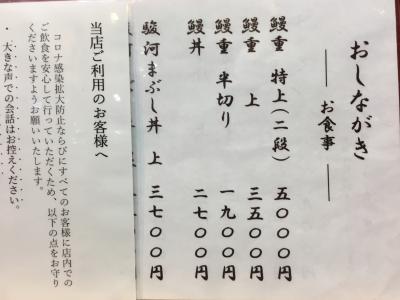 おしながき
― お食事 ―
鰻重 特上(二段) 五〇〇〇円
鰻重 上 三五〇〇円
鰻重 半切り 一九〇〇円
鰻丼 二七〇〇円
駿河まぶし丼 上 三七〇〇円
当店ご利用のお客様へ
コロナ感染拡大防止ならびにすべてのお客様に店内での
ご飲食を安心して行っていただくため、以下の点をお守り
くださいますようお願いいたします。
・大きな声での会話はお控えください。